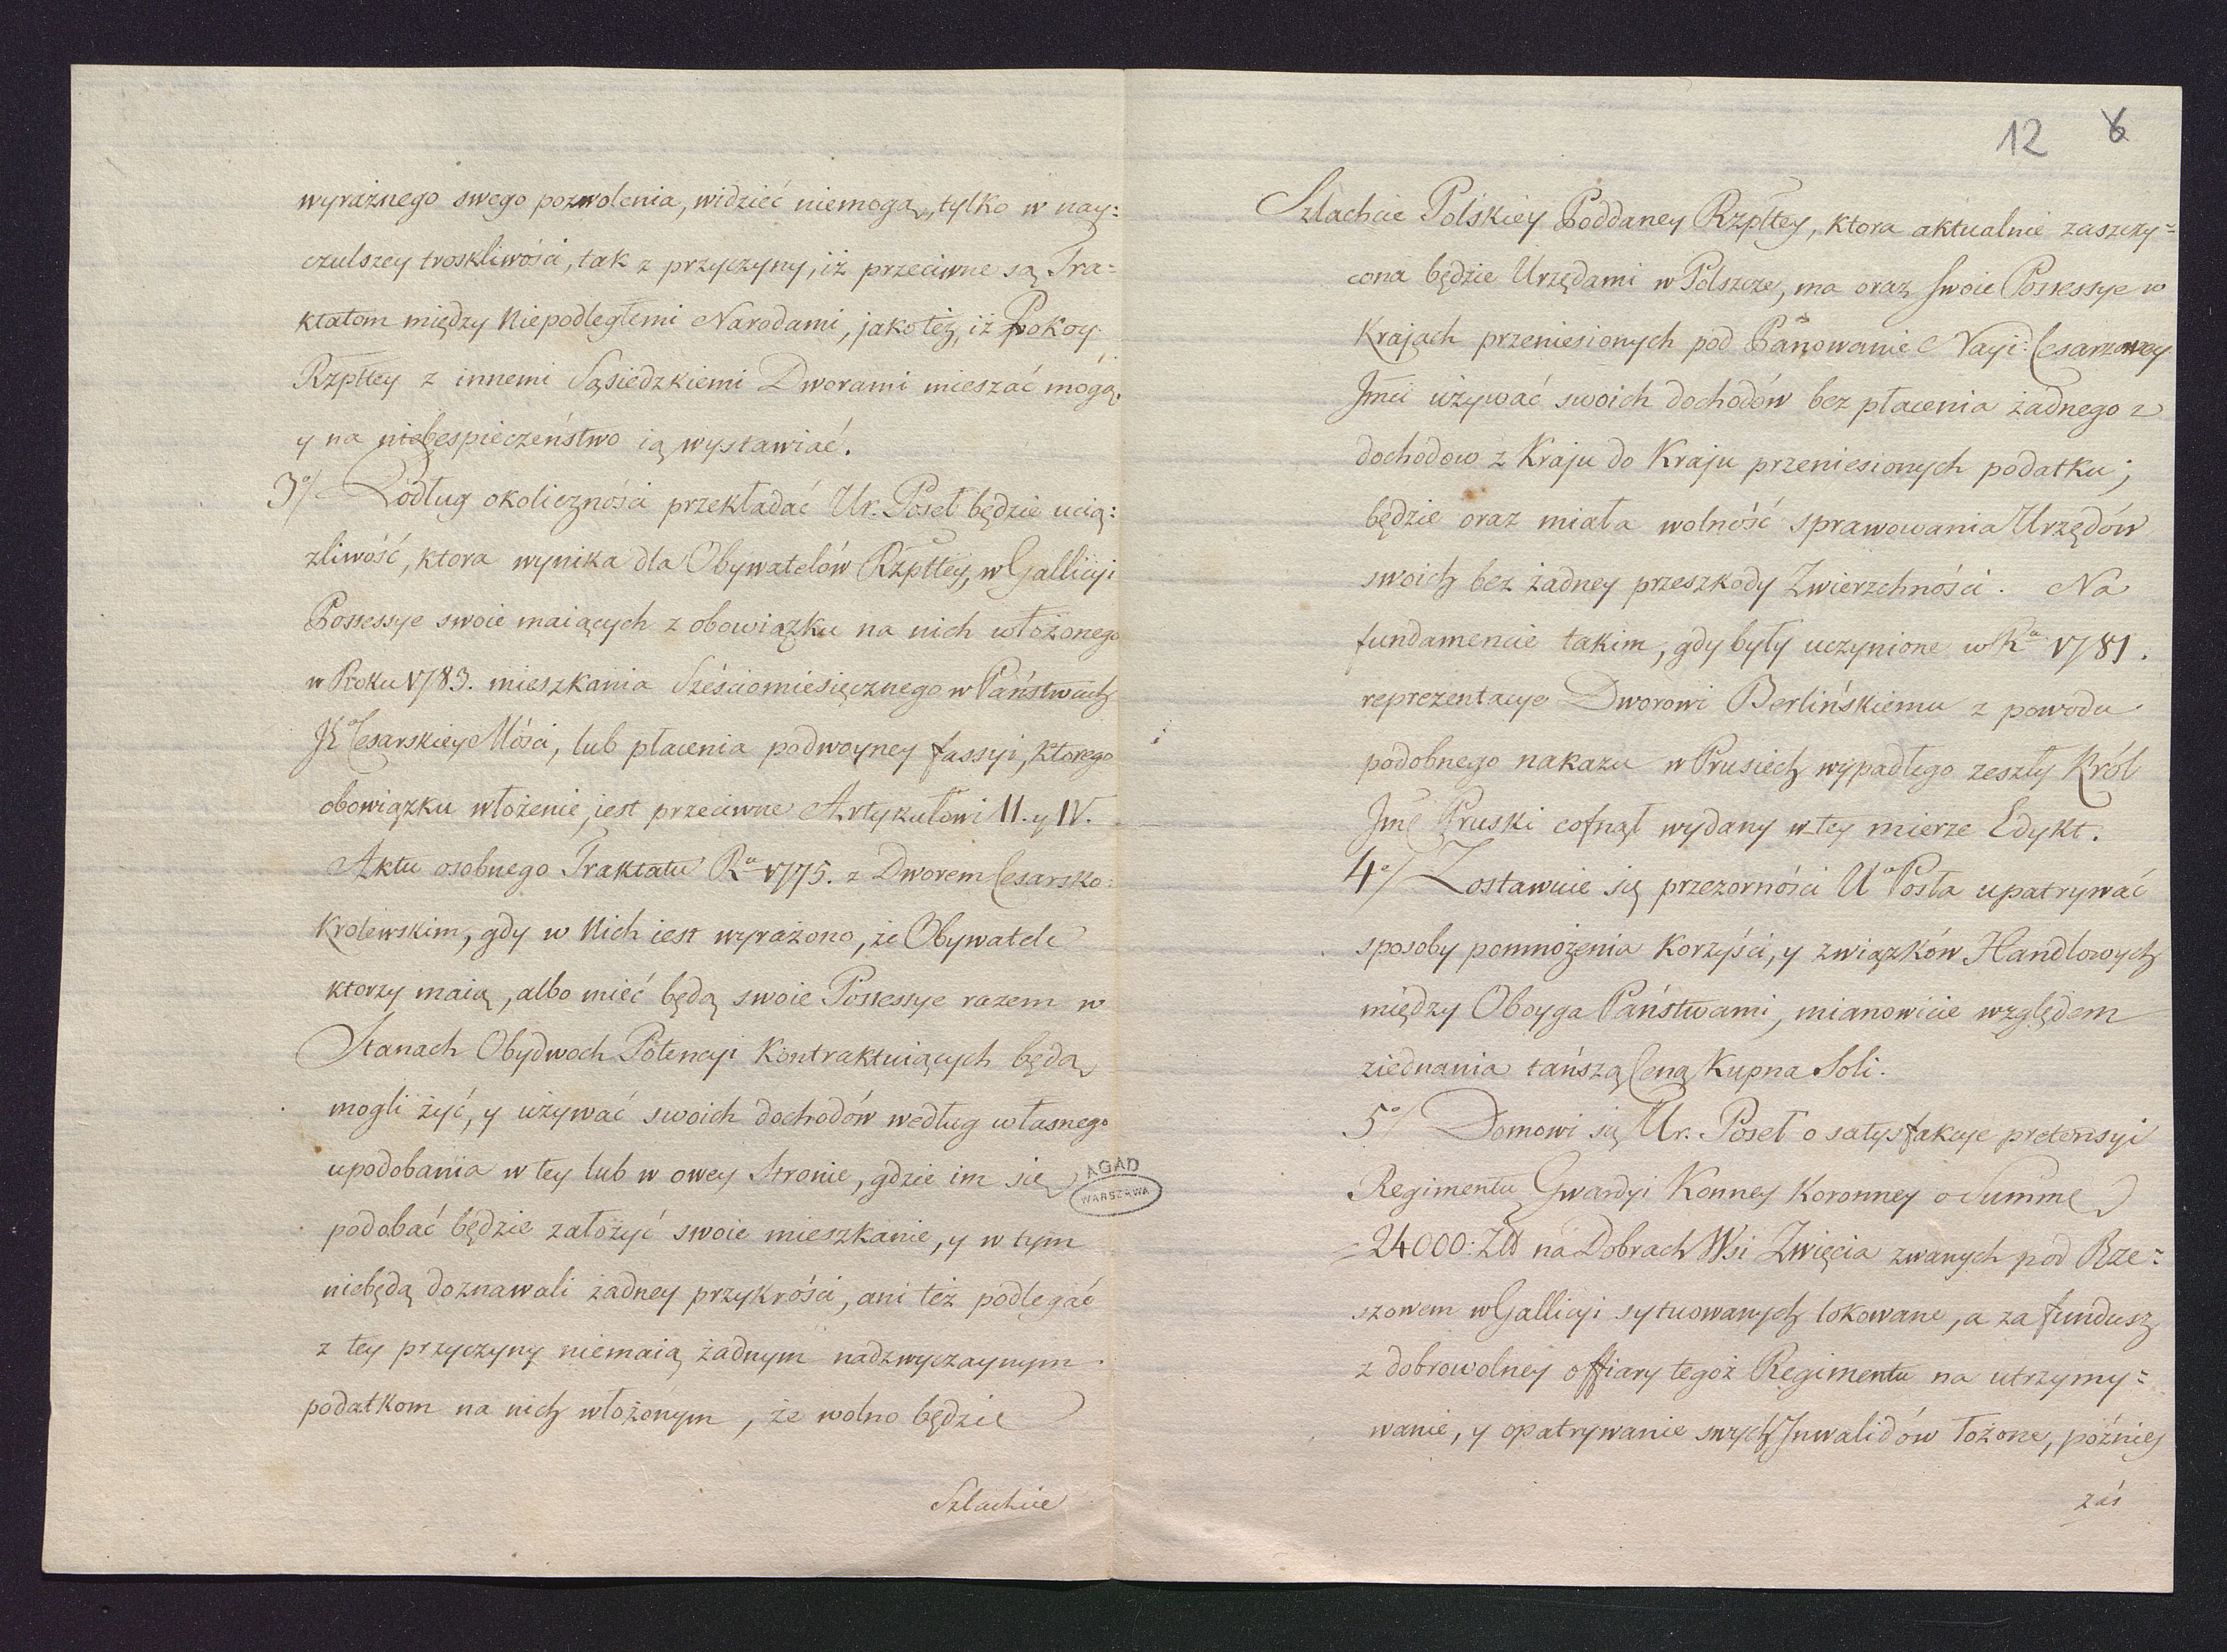 wyraźnego swego pozwolenia, widzieć niemogą, tylko w nay:
czulszey troskliwości, tak z przyczyny, iż przeciwne są Tra=
ktatom między Niepodległemi Narodami, jako też, iż Pokoy
Rzpltey z innemi Sąsiedzkiemi Dworami mieszać mogą,
y na niebespieczeństwo ią wystawiać.
3o/ Podług okoliczności przekładać Ur. Poseł będzie ucią:
zliwość, ktora wynika dla Obywatelów Rzpltey, w Gallicyi
Possessye swoie maiących z obowiązku na nich włożonego
w Roku 1783. mieszkania Sześciomiesięcznego w Państwach
JK Cesarskiey Mości, lub płacenia podwoyney fassyi, ktorego
obowiązku włożenie, jest przeciwne Artykułowi II. y IV.
Aktu osobnego Traktatu Ru 1775. z Dworem Cesarsko:
Krolewskim, gdy w Nich iest wyrażono, że Obywatele
ktorzy maią, albo mieć będą swoie Possessye razem w
Stanach Obydwoch Potencyi Kontraktuiących będą
mogli żyć, y używać swoich dochodów według własnego
upodobania w tey lub w owey Stronie, gdzie im się
podobać będzie założyć swoie mieszkanie, y w tym
niebędą doznawali żadney przykrości, ani też podlegać
z tey przyczyny niemaią żadnym nadzwyczaynym
podatkom na nich włożonym, że wolno będzie
Szlachcie
AGAD
WARSZAWA
12 6
Szlachcie Polskiey Poddaney Rzpltey, ktora aktualnie zaszczy=
cona będzie Urzędami w Polszcze, ma oraz swoie Possessye w
Krajach przeniesionych pod Panowanie Nayi: Cesarzowey
Jmci używać swoich dochodów bez płacenia żadnego z
dochodow z Kraju do Kraju przeniesionych podatku;
będzie oraz miała wolność sprawowania Urzędów
swoich bez żadney przeszkody Zwierzchności. Na
fundamencie takim, gdy były uczynione w Ru 1781.
reprezentacye Dworowi Berlińskiemu z powodu
podobnego nakazu w Prusiech wypadłego zeszły Król
Jmć Pruski cofnął wydany w tey mierze Edykt.
4o/ Zostawuie się przezorności Uo Posła upatrywać
sposoby pomnożenia Korzyści, y związków Handlowych
między Oboyga Państwami, mianowicie względem
ziednania tańszą Ceną Kupna Soli.
5o/ Domowi się Ur. Poseł o satysfakcye pretensyi
Regimentu Gwardyi Konney Koronney o Summę
=24000: Złł na Dobrach Wsi Zwięcia zwanych pod Rze=
szowem w Gallicyi sytuowanych lokowane, a za fundusz
z dobrowolney offiary tegoż Regimentu na utrzymy=
wanie, y opatrywanie swych Inwalidów łożone, późniey
zaś